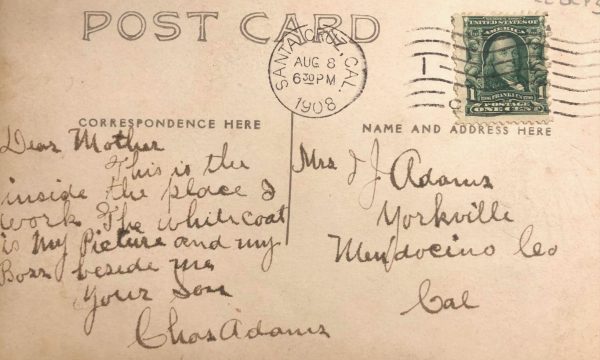 POST CARD
SANTA CRUZ, CAL.
AUG 8
6 30 PM
1908
UNITED STATES OF
AMERICA
1 1
FRANKLIN
POSTAGE
ONE CENT
CORRESPONDENCE HERE
Dear Mother
This is the
inside the place I
work The whitecoat
is My Picture and my
Boss beside me
Your Son
Chas Adams
NAME AND ADDRESS HERE
Mrs J J Adams
Yorkville
Mendocino Co
Cal